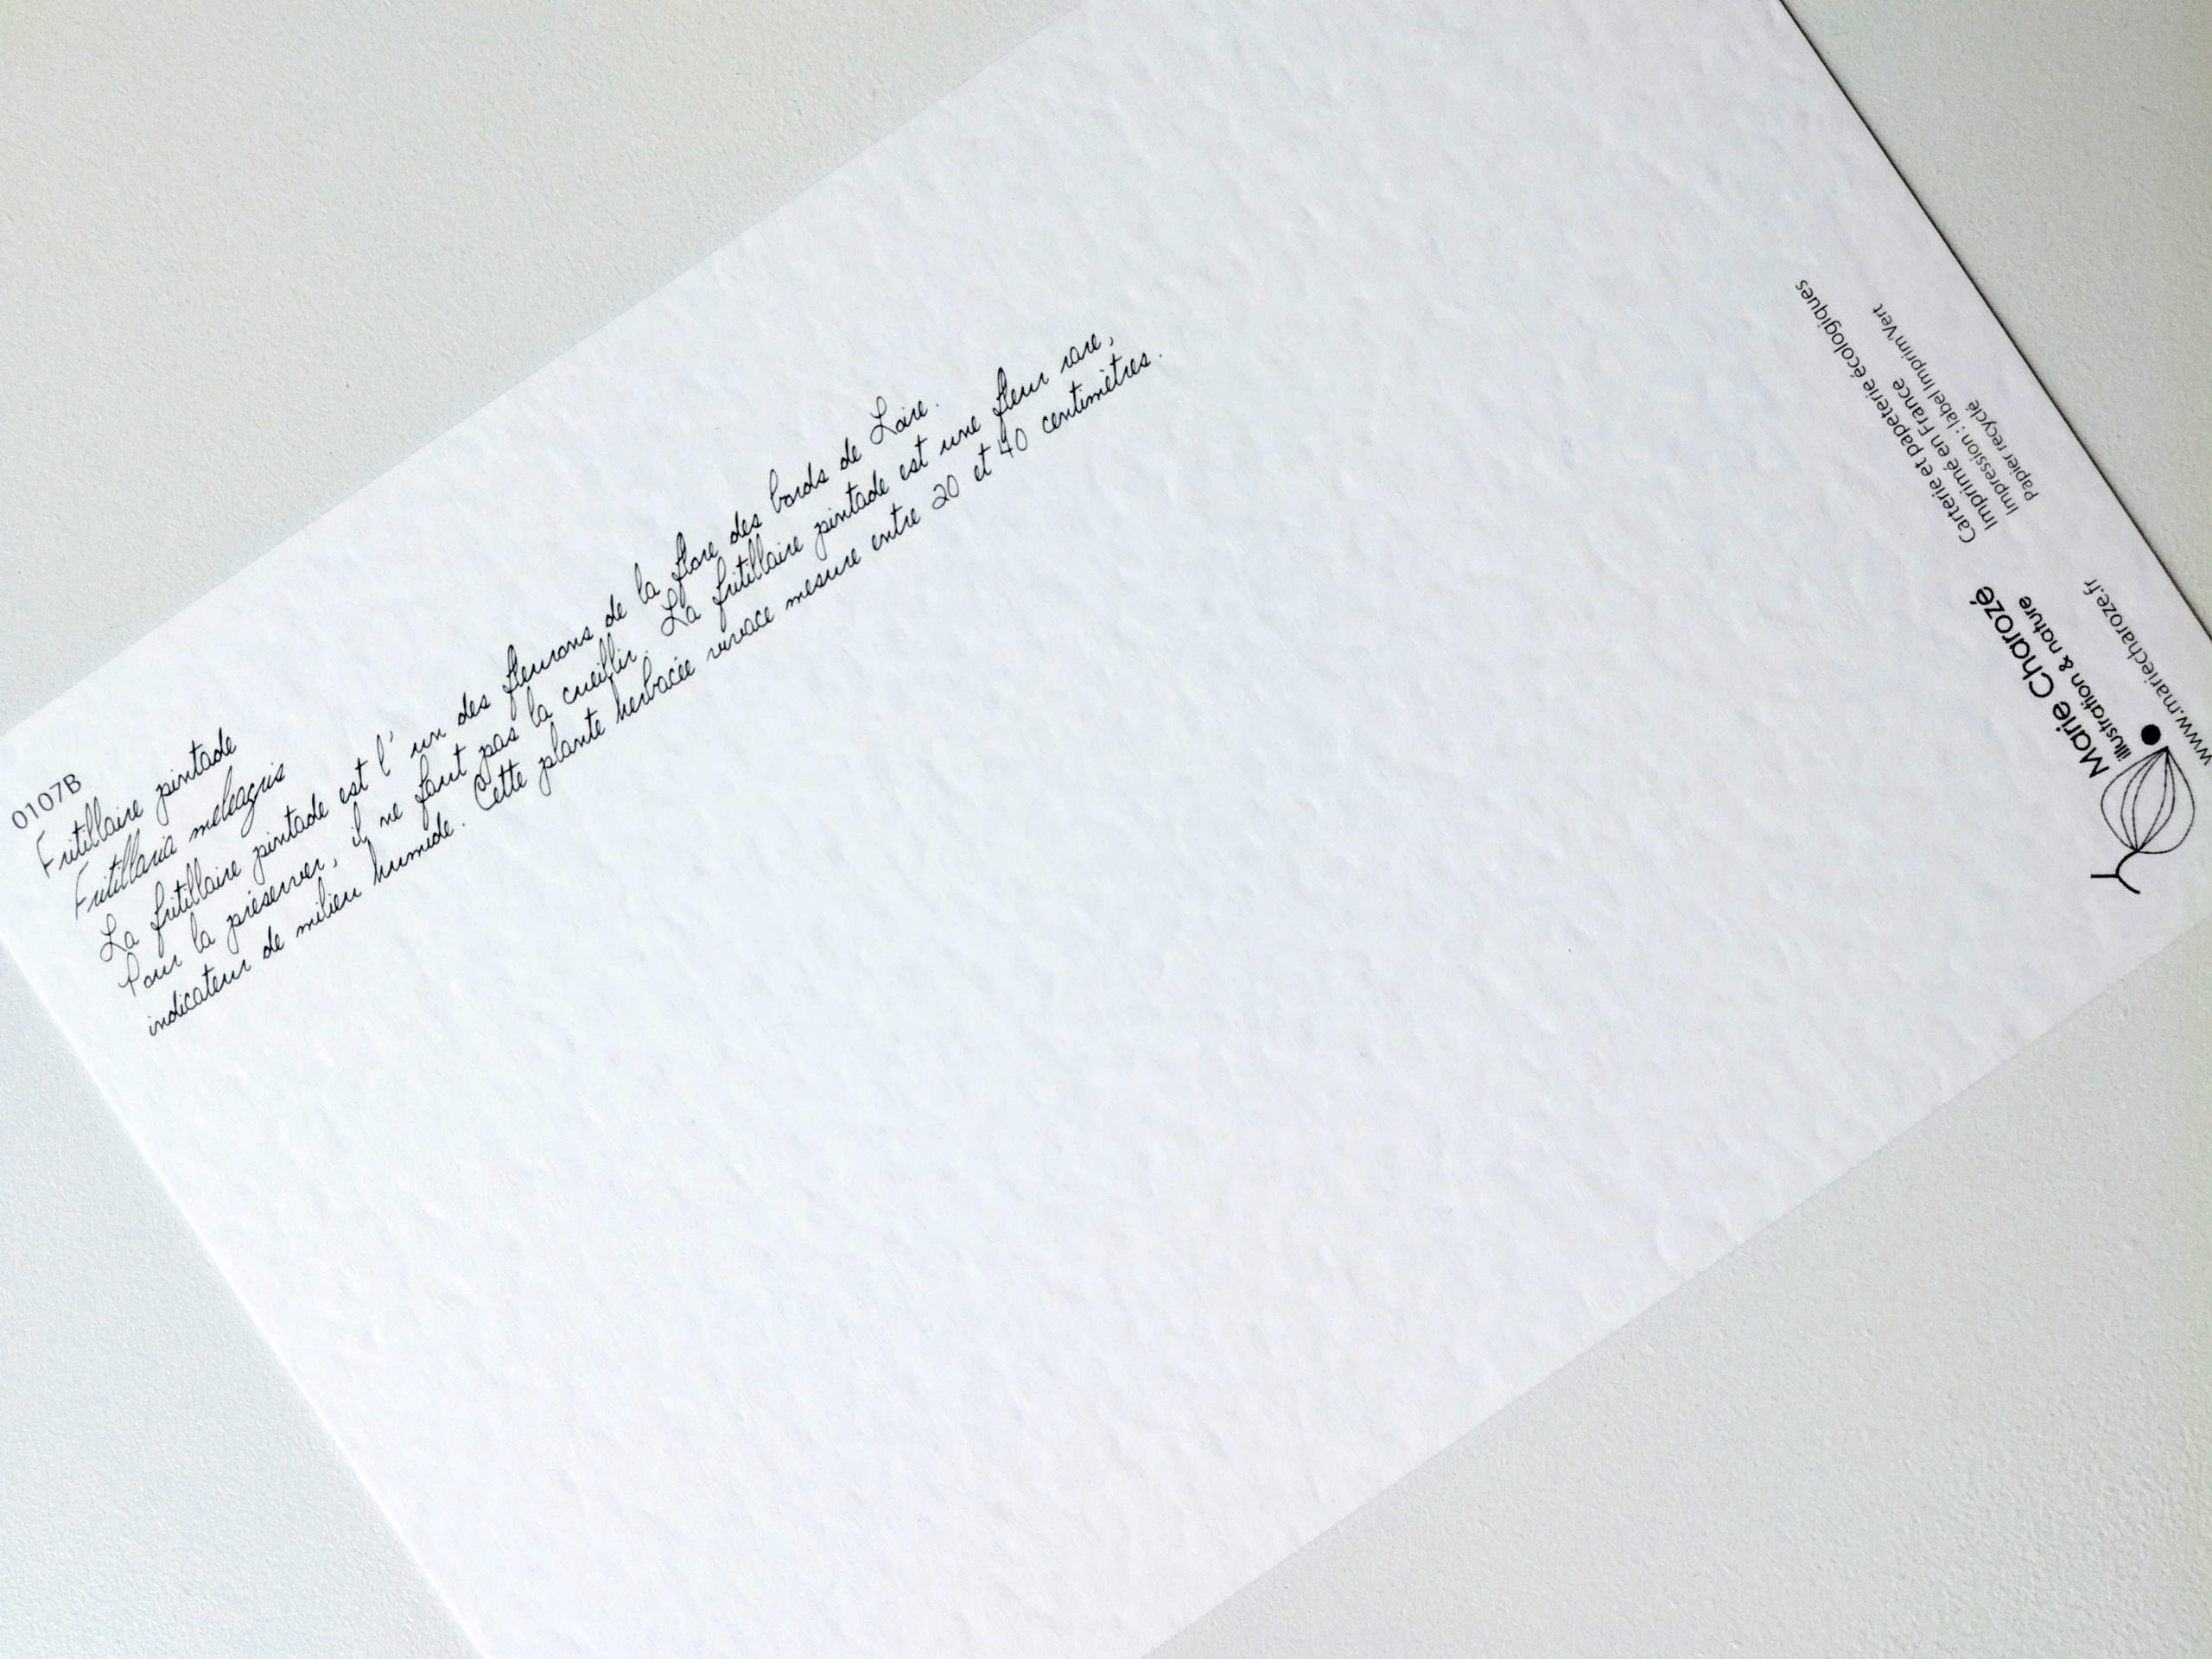 0107B
Fritillaire pintade
Fritillaria meleagris
La fritillaire pintade est l'un des fleurons de la flore des bords de Loire.
Pour la préserver, il ne faut pas la cueillir. La fritillaire pintade est une fleur rare,
indicateur de milieu humide. Cette plante herbacée vivace mesure entre 20 et 40 centimètres.
Marie Charozé
illustration & nature
www.mariecharoze.fr
Carterie et papeterie écologiques
Imprimé en France
Impression : label Imprim'Vert
Papier recyclé